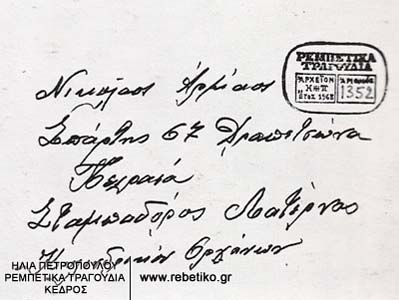 ΡΕΜΠΕΤΙΚΑ
ΤΡΑΓΟΥΔΙΑ
ΑΡΧΕΙΟΝ
ΗΠ
ΕΤΟΣ 1968
1352
Νικόλαος Αρμάος
Σπάρτης 67 Δραπετσώνα
Πειραιά
Σταμπαδόρος Λατέρνας
Οργάνων
ΗΛΙΑ ΠΕΤΡΟΠΟΥΛΟΥ
ΡΕΜΠΕΤΙΚΑ ΤΡΑΓΟΥΔΙΑ
ΚΕΔΡΟΣ
www.rebetiko.gr